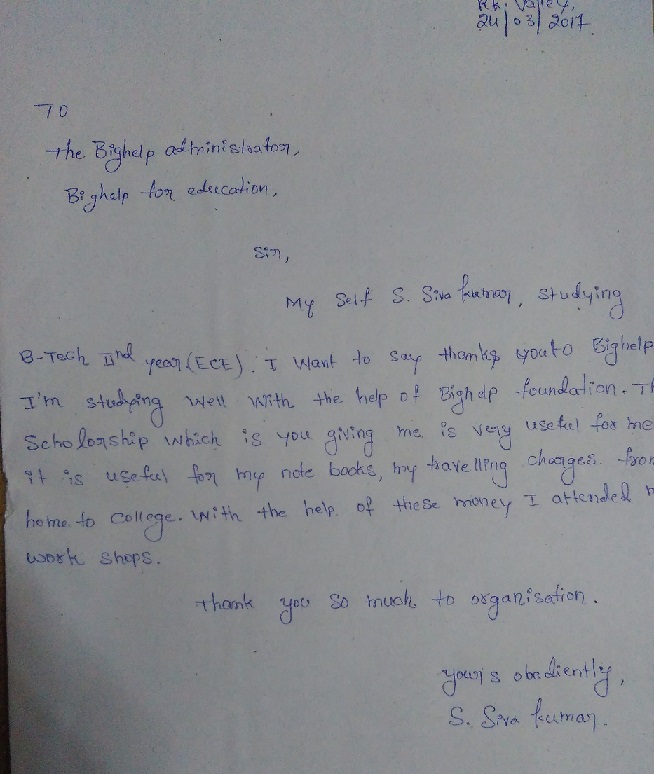 R.K. Valley,
24/03/2017
TO
The Bighelp administrator,
Bighelp for education,
Sir,
My Self S. Siva kumar, studying
B-Tech IInd year (ECE). I want to say thanks you to Bighelp
I'm studying well with the help of Bighelp foundation. Th
Scholorship which is you giving me is very useful for me
it is useful for my note books, my travelling charges from
home to college. With the help of these money I attended
work shops.
Thank you so much to organisation.
your's obediently,
S. Siva kumar.